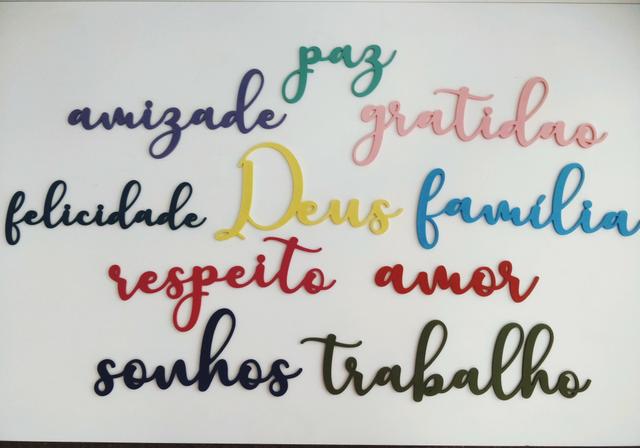 paz
amizade gratidao
felicidade Deus família
respeito amor
sonhos trabalho